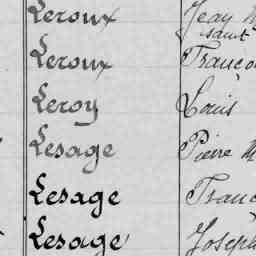 Leroux Jean
saint
Leroux Franço
Leroy Louis
Lesage Pierre M
Lesage Franç
Lesage Joseph